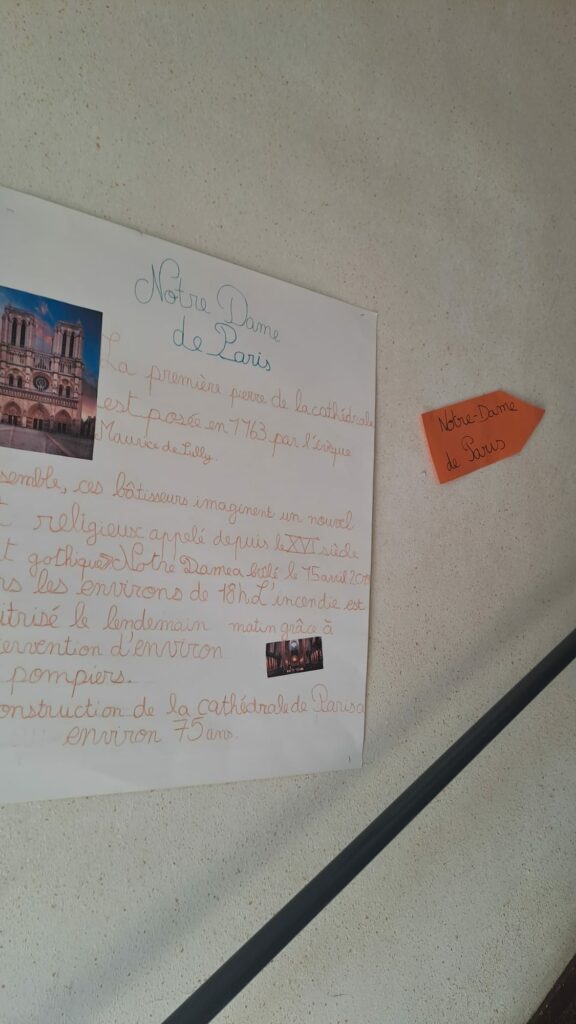 Notre Dame
de Paris
La première pierre de la cathédrale
est posée en 1163 par l'évêque
Maurice de Sully.
semble, ces bâtisseurs imaginent un nouvel
religieux appelé depuis le XVI siècle
t gothique Notre Dame a brûlé le 15 avril 2019
ns les environs de 18h L'incendie est
itrisé le lendemain matin grâce à
tervention d'environ
pompiers.
onstruction de la cathédrale de Paris a
environ 75 ans.
Notre-Dame
de Paris